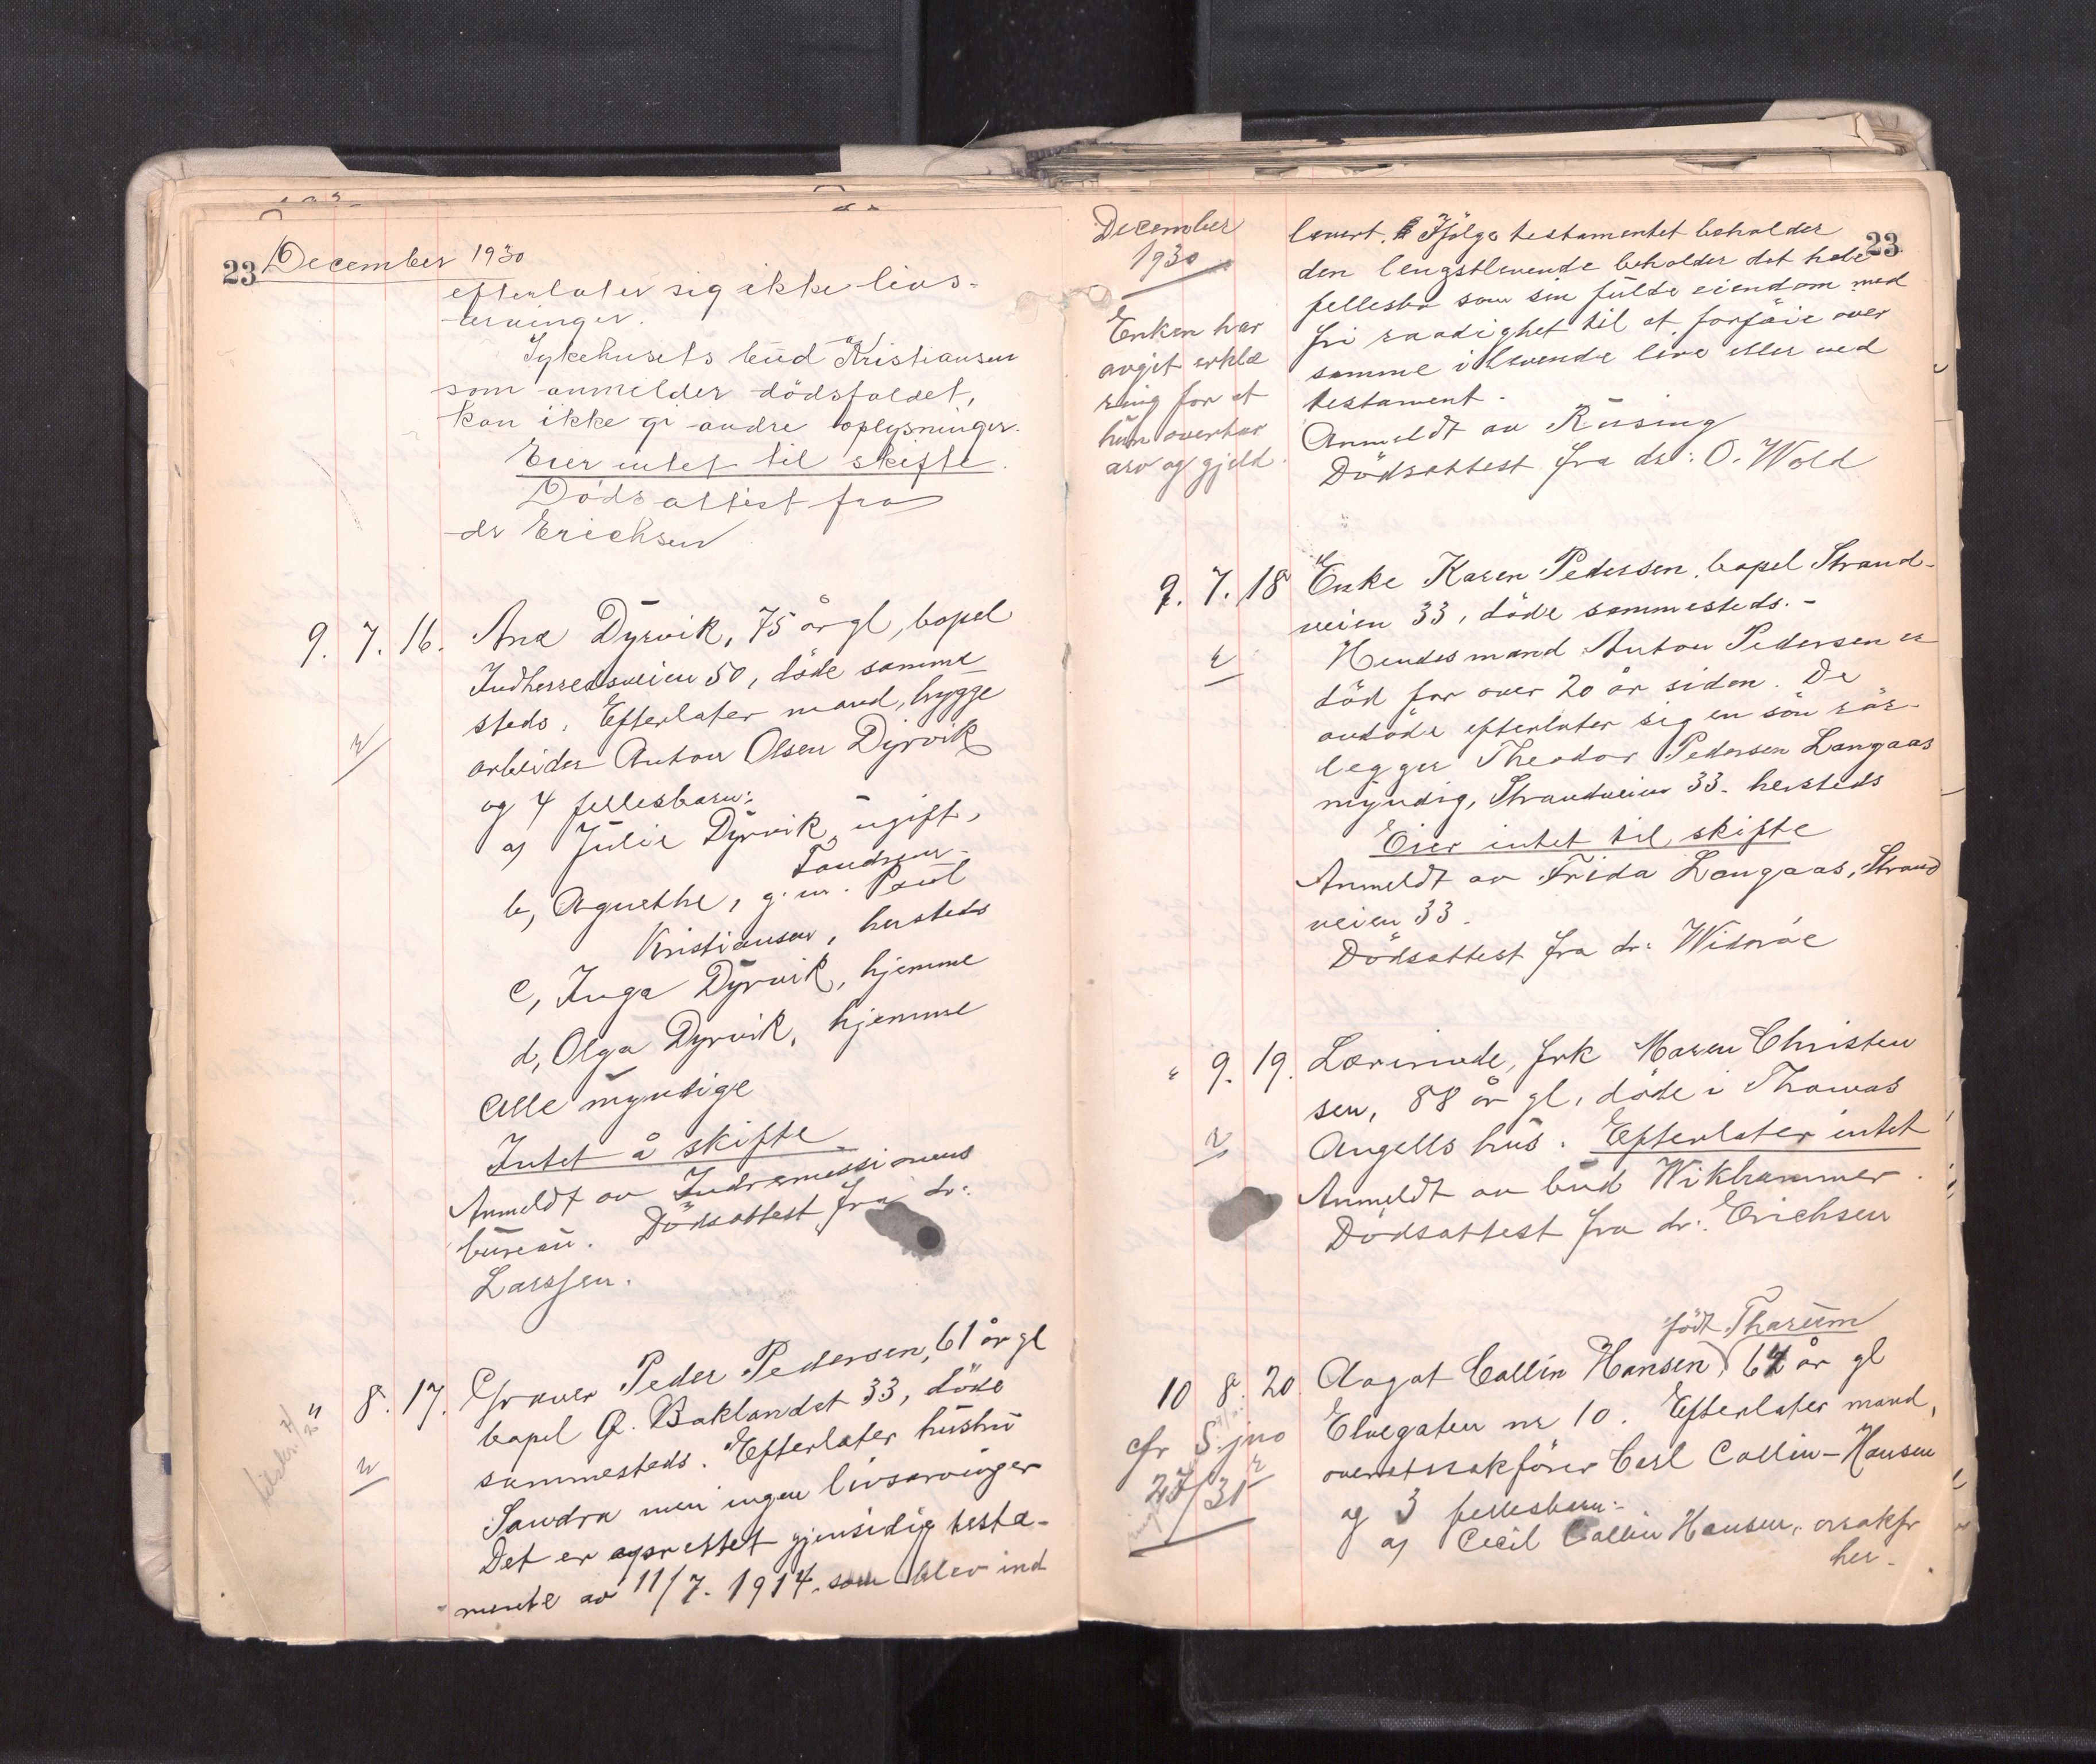 23 December 1930
efterlater sig ikke livs-
arvinger.
Sykehusets bud Kristiansen
som anmelder dödsfaldet,
kan ikke gi andre oplysninger.
Eier intet til skifte.
Dödsattest fra
dr Erichsen
9. 7. 16. Ane Dyrvik, 75 år gl, bopel
Indherredsveien 50, döde samme
steds. Efterlater mand, brygge
arbeider Anton Olsen Dyrvik
og 4 fellesbarn:
a) Julie Dyrvik, ugift,
b, Agnethe, g. m. Paul
Kristiansen, hersteds
c, Inga Dyrvik, hjemme
d, Olga Dyrvik, hjemme
Alle myndige
Intet å skifte
Anmeldt av Indremissionens
bureau. Dödsattest fra dr.
Larssen.
" 8. 17. Graver Peder Pedersen, 61 år gl
bopel Ö. Baklandet 33, döde
sammesteds. Efterlater hustru
Sandra men ingen livsarvinger
Det er oprettet gjensidig testa-
mente av 11/7. 1914. som blev ind
December
1930
Enken har
avgit erklæ
ring for at
hun overtar
arv og gjeld.
23
levert. Ifölge testamentet beholder
den lengstlevende beholder det hele
fellesbo som sin fulde eiendom med
fri raadighet til at forföie over
samme i levende live eller ved
testament.
Anmeldt av Rüsing
Dödsattest fra dr: O. Wold
9. 7. 18 Enke Karen Pedersen, bopel Strand-
veien 33, döde sammesteds.-
Hendes mand Anton Pedersen er
död for over 20 år siden. De
avdöde efterlater sig en sön rör-
legger Theodor Pedersen Langaas
myndig, Strandveien 33. hersteds
Eier intet til skifte
Anmeldt av Frida Langaas, Strand
veien 33.
Dödsattest fra dr: Wideröe
" 9. 19. Lærerinde, frk Maren Christen
sen, 88 år gl, döde i Thomas
Angells hus. Efterlater intet
Anmeldt av bud Wikhammer.
Dödsattest fra dr: Erichsen
född Tharum
10 8. 20 Aagot Collin Hansen, 64 år gl
Elvegaten nr 10. Efterlater mand,
cfr S. jno
overretssakförer Carl Collin-Hansen
27/31
og 3 fellesbarn:
a) Cecil Collin Hansen, orsakfr
her-